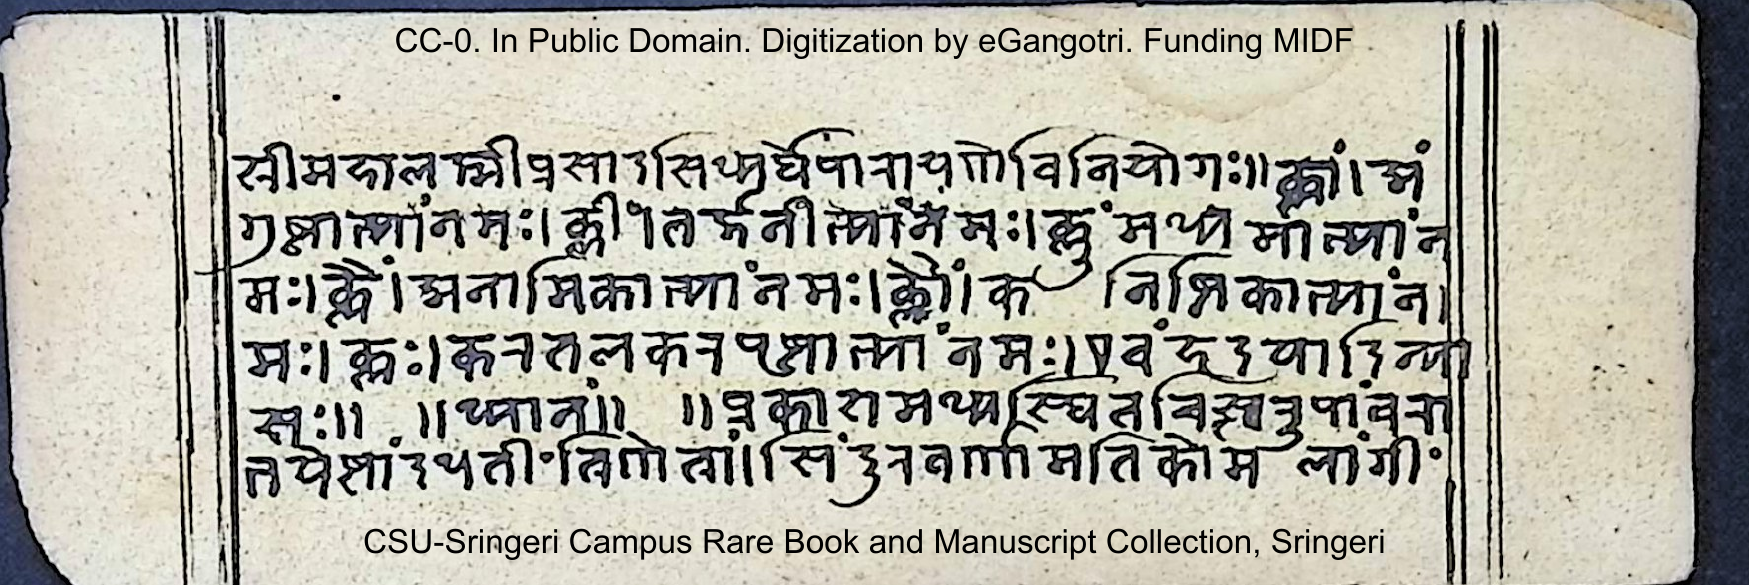 CC-0. In Public Domain. Digitization by eGangotri. Funding MIDF
स्रीमहालक्ष्मीप्रसादसिध्यर्थेपारायणेविनियोगः॥क्लां।अं
गुष्ठाभ्यांनमः।क्लीं।तर्जनीभ्यांनमः।क्लुंमध्यमाभ्यांन
मः।क्लैं।अनामिकाभ्यांनमः।क्लौं।कनिष्ठिकाभ्यांन।
मः।क्लः।करतलकरपृष्ठाभ्यांनमः।एवंहृदयादिन्या
सः॥ ॥ध्यानं॥ ॥प्रकाशमध्यस्थितचित्स्वरुपांवरा
भयेसांदधतींत्रिणेत्रां॥सिंदुरवर्णामतिकोमलांगीं
CSU-Sringeri Campus Rare Book and Manuscript Collection, Sringeri